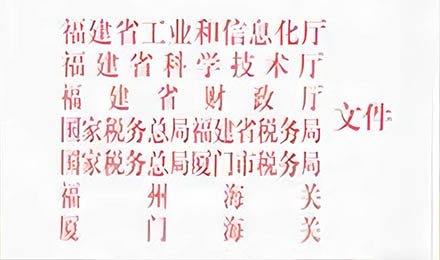 福建省工业和信息化厅
福建省科学技术厅
福建省财政厅
国家税务总局福建省税务局
国家税务总局厦门市税务局
福州海关
厦门海关
文件